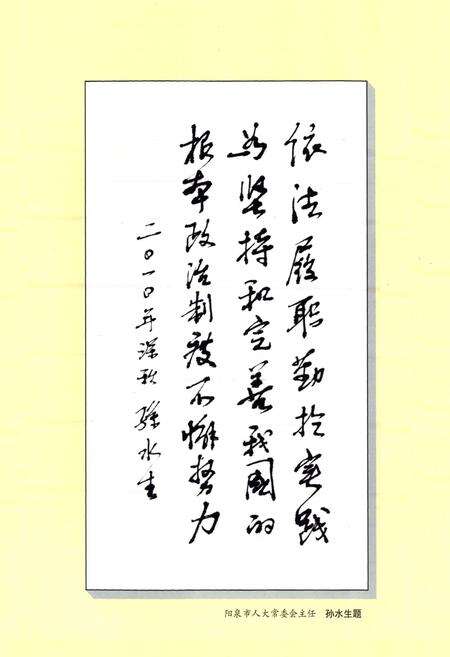 依法履职勤于实践
为坚持和完善我国的
根本政治制度不懈努力
二〇一〇年深秋 孫水生
阳泉市人大常委会主任 孙水生题